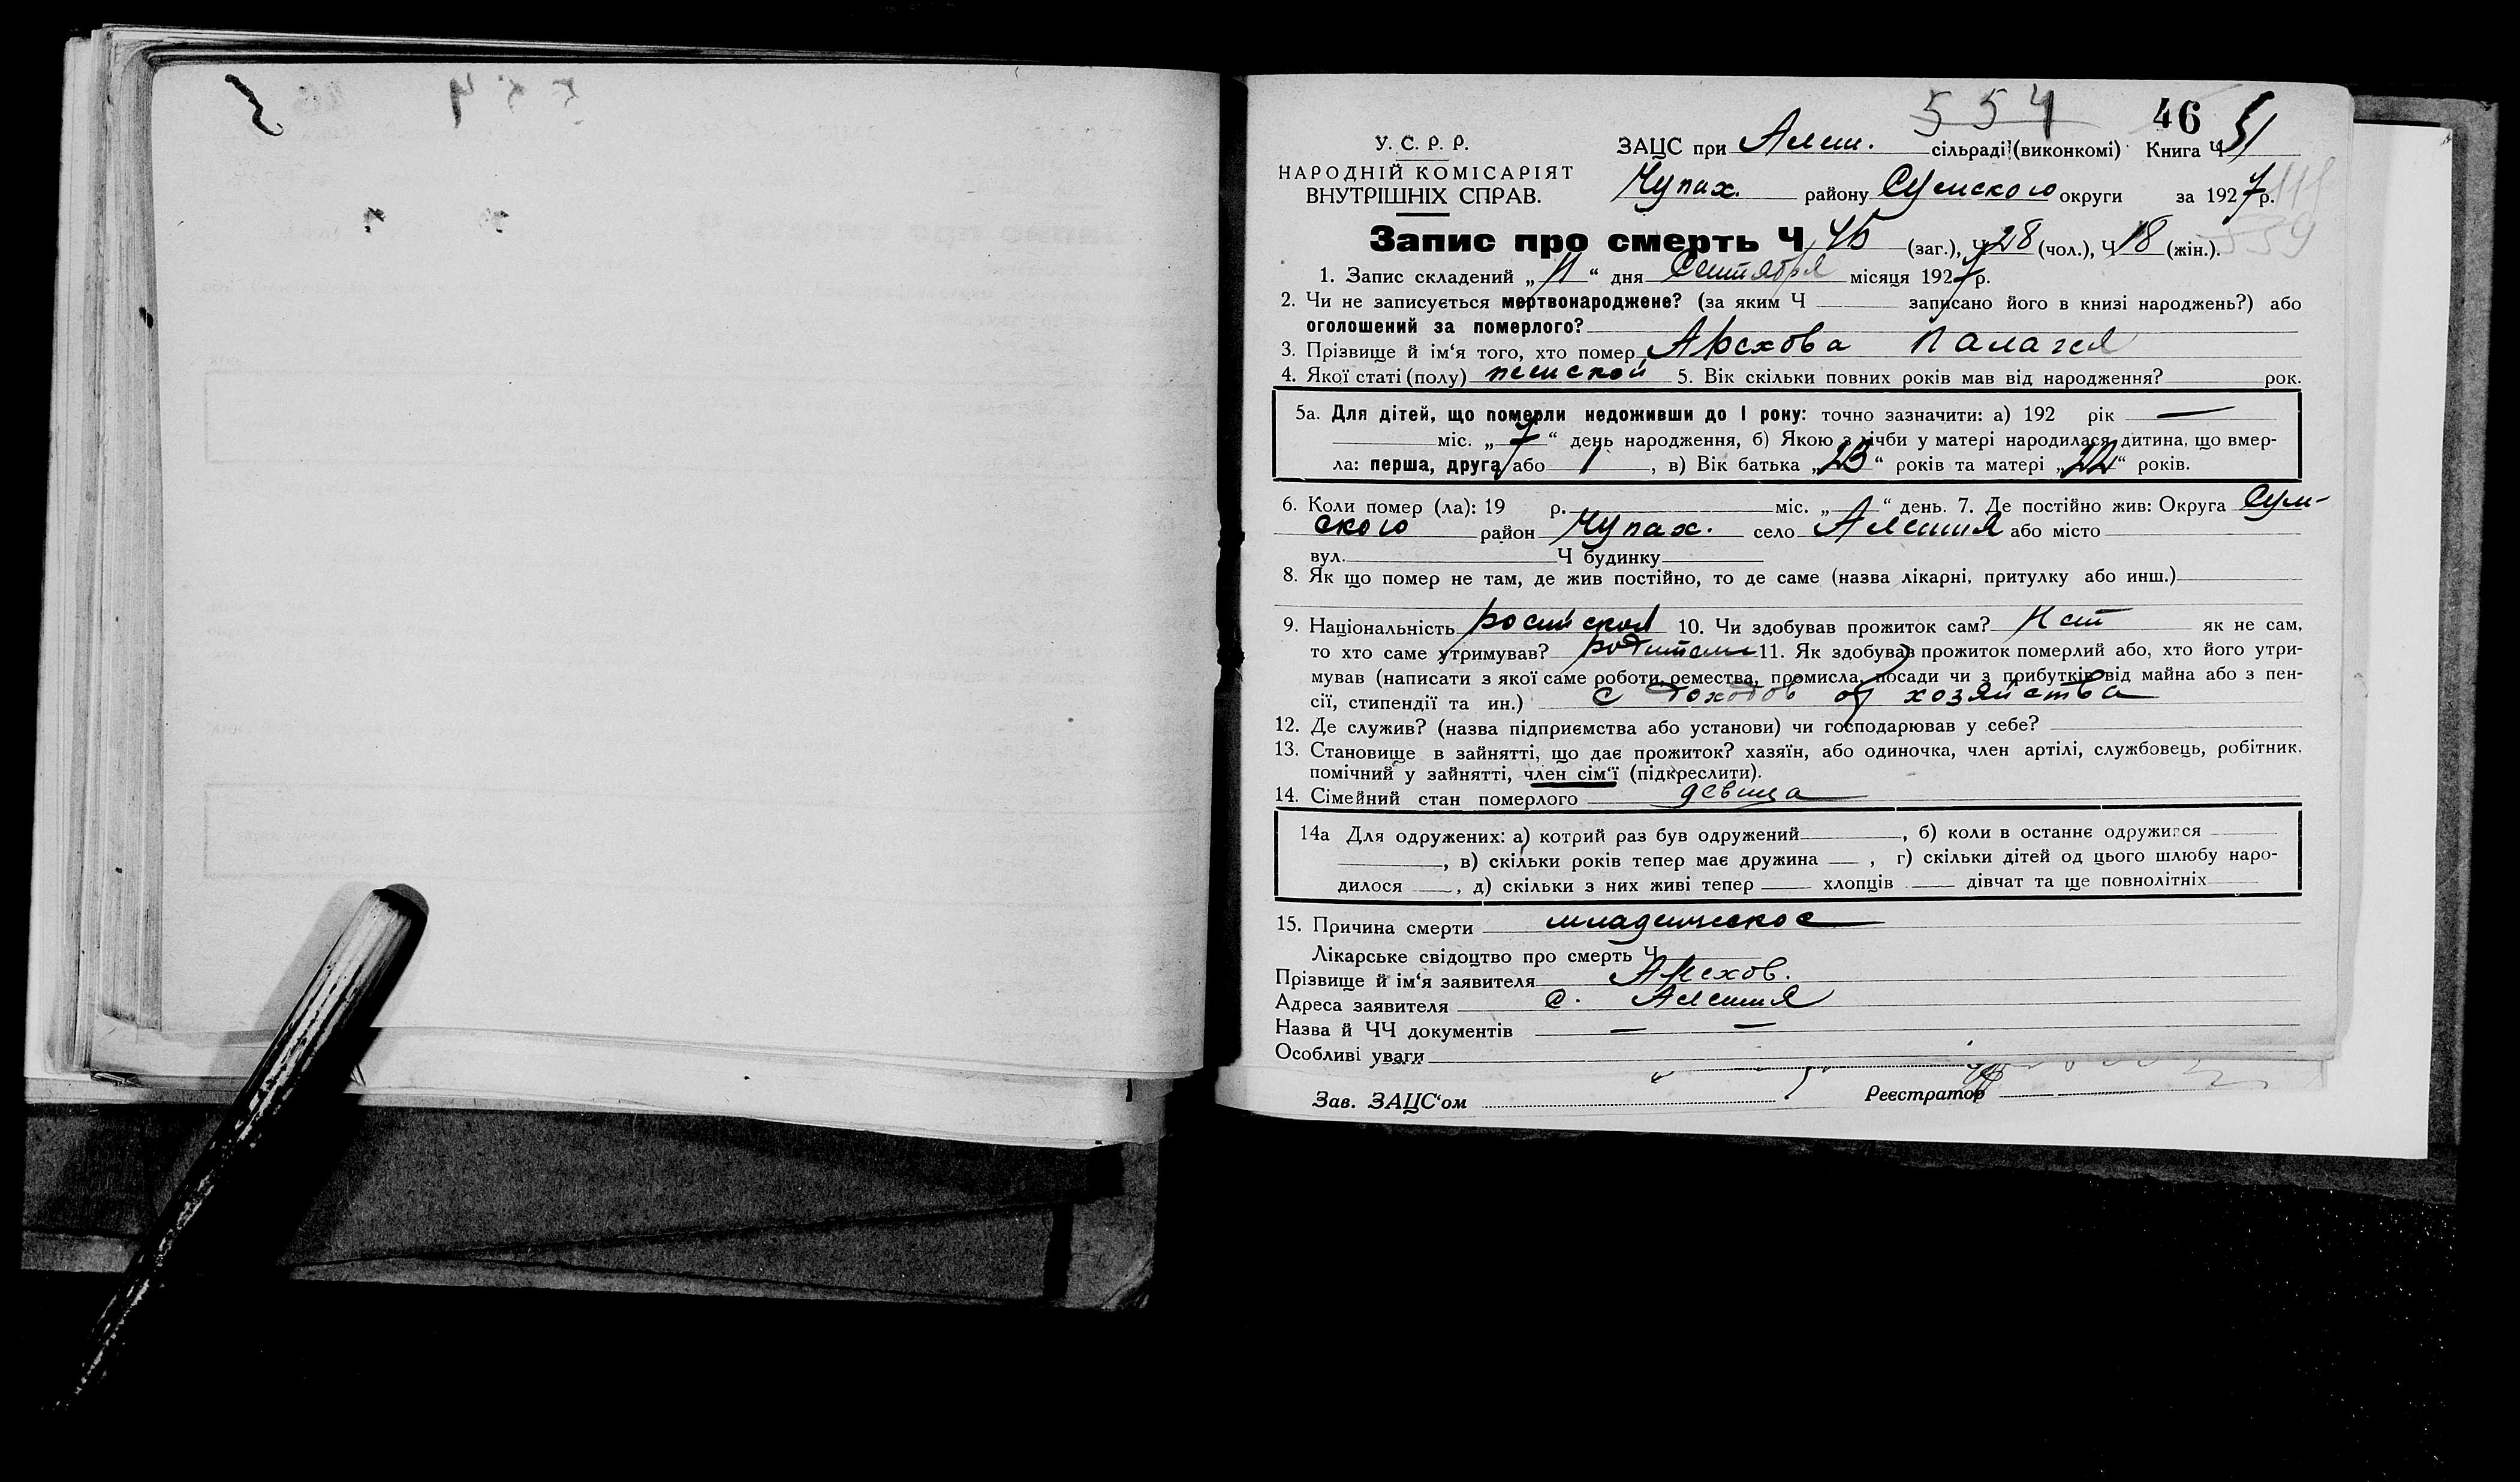 5 5 4 46
У. С. Р. Р. ЗАЦС при Алеш. сільраді (виконкомі) Книга Ч
НАРОДНІЙ КОМІСАРІЯТ Чупах. району Сумского округи за 1927 р.
ВНУТРІШНІХ СПРАВ.
Запис про смерть Ч (заг.), Ч 28 (чол.), Ч 18 (жін.).
1. Запис складений „ “ дня Сентября місяця 1927 р.
2. Чи не записується мертвонароджене? (за яким Ч записано його в книзі народжень?) або
оголошений за померлого?
3. Прізвище й ім‘я того, хто помер Палагея
4. Якої статі (полу) женской 5. Вік скільки повних років мав від народження? рок.
5а. Для дітей, що померли недоживши до 1 року: точно зазначити: а) 192 рік —
міс. „7“ день народження, б) Якою з лічби у матері народилася дитина, що вмер-
ла: перша, друга або 1, в) Вік батька „23“ років та матері „22“ років.
6. Коли помер (ла): 19 р. міс. „ “ день. 7. Де постійно жив: Округа Сум-
ского район Чупах. село Алешня або місто
вул. Ч будинку
8. Як що помер не там, де жив постійно, то де саме (назва лікарні, притулку або инш.)
9. Національність 10. Чи здобував прожиток сам? Нет як не сам,
то хто саме утримував? родители 11. Як здобував прожиток померлий або, хто його утри-
мував (написати з якої саме роботи, ремества, промисла, посади чи з прибутків від майна або з пен-
сії, стипендії та ин.) с доходов от хозяйства
12. Де служив? (назва підприємства або установи) чи господарював у себе?
13. Становище в зайнятті, що дає прожиток? хазяїн, або одиночка, член артілі, службовець, робітник,
помічний у зайнятті, член сім‘ї (підкреслити).
14. Сімейний стан померлого девица
14а Для одружених: а) котрий раз був одружений , б) коли в останнє одружився
, в) скільки років тепер має дружина , г) скільки дітей од цього шлюбу наро-
дилося , д) скільки з них живі тепер хлопців дівчат та ще повнолітніх
15. Причина смерти младенческое
Лікарське свідоцтво про смерть Ч
Прізвище й ім‘я заявителя
Адреса заявителя с. Алешня
Назва й ЧЧ документів — —
Особливі уваги
Зав. ЗАЦС‘ом Реєстратор